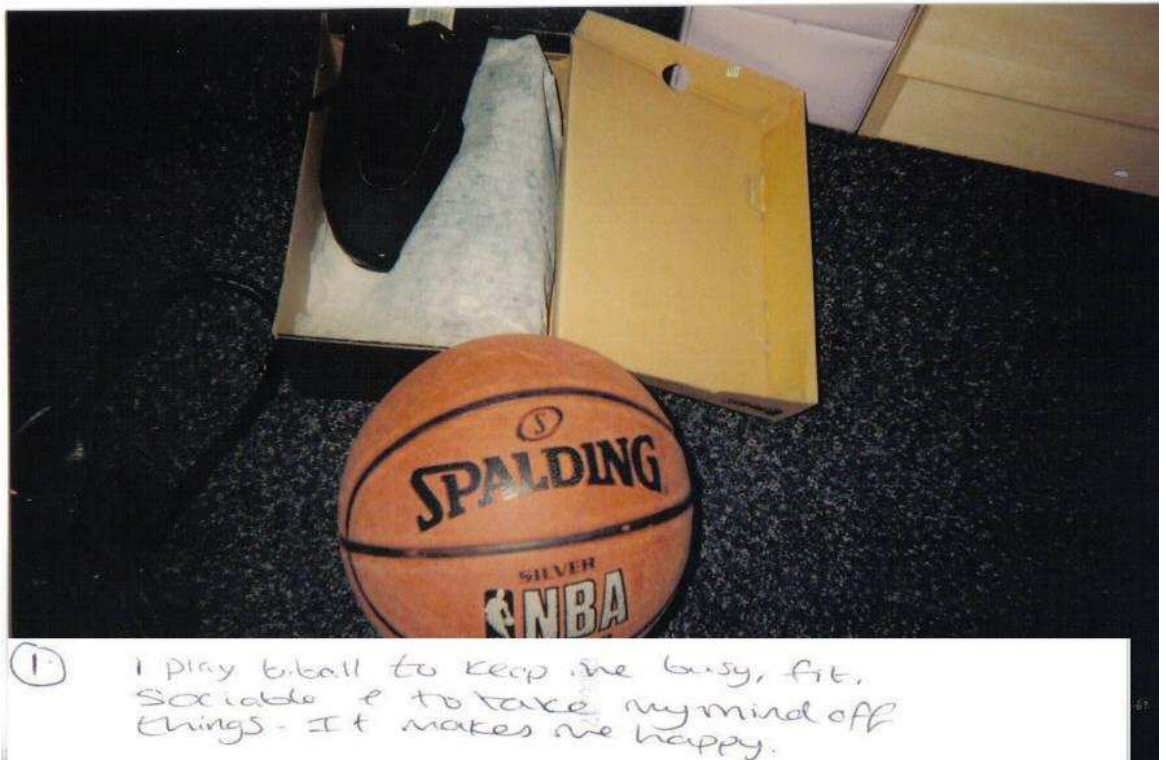 S
SPALDING
SILVER
NBA
1 I play b.ball to keep me busy, fit,
sociable & to take my mind off
things. It makes me happy.